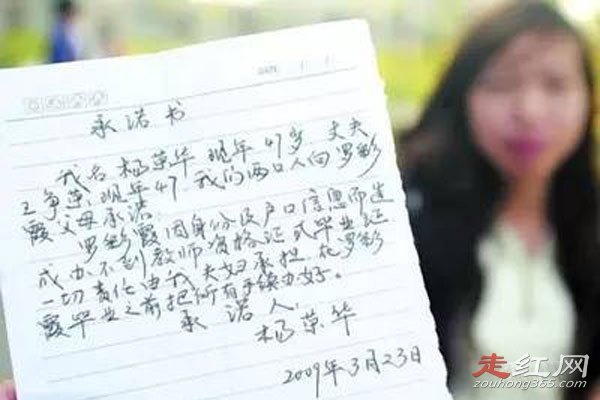 DATE
承诺书
我名杨荣华 现年47岁 丈夫
王争荣 现年47 我们两口人向罗彩
霞父母承诺:
罗彩霞因身份及户口信息而造
成办不到教师资格证或毕业证
一切责任由我夫妇承担,在罗彩
霞毕业之前把所有手续办好。
承诺人:
杨荣华
2009年3月23日
走红网
zouhong365.com